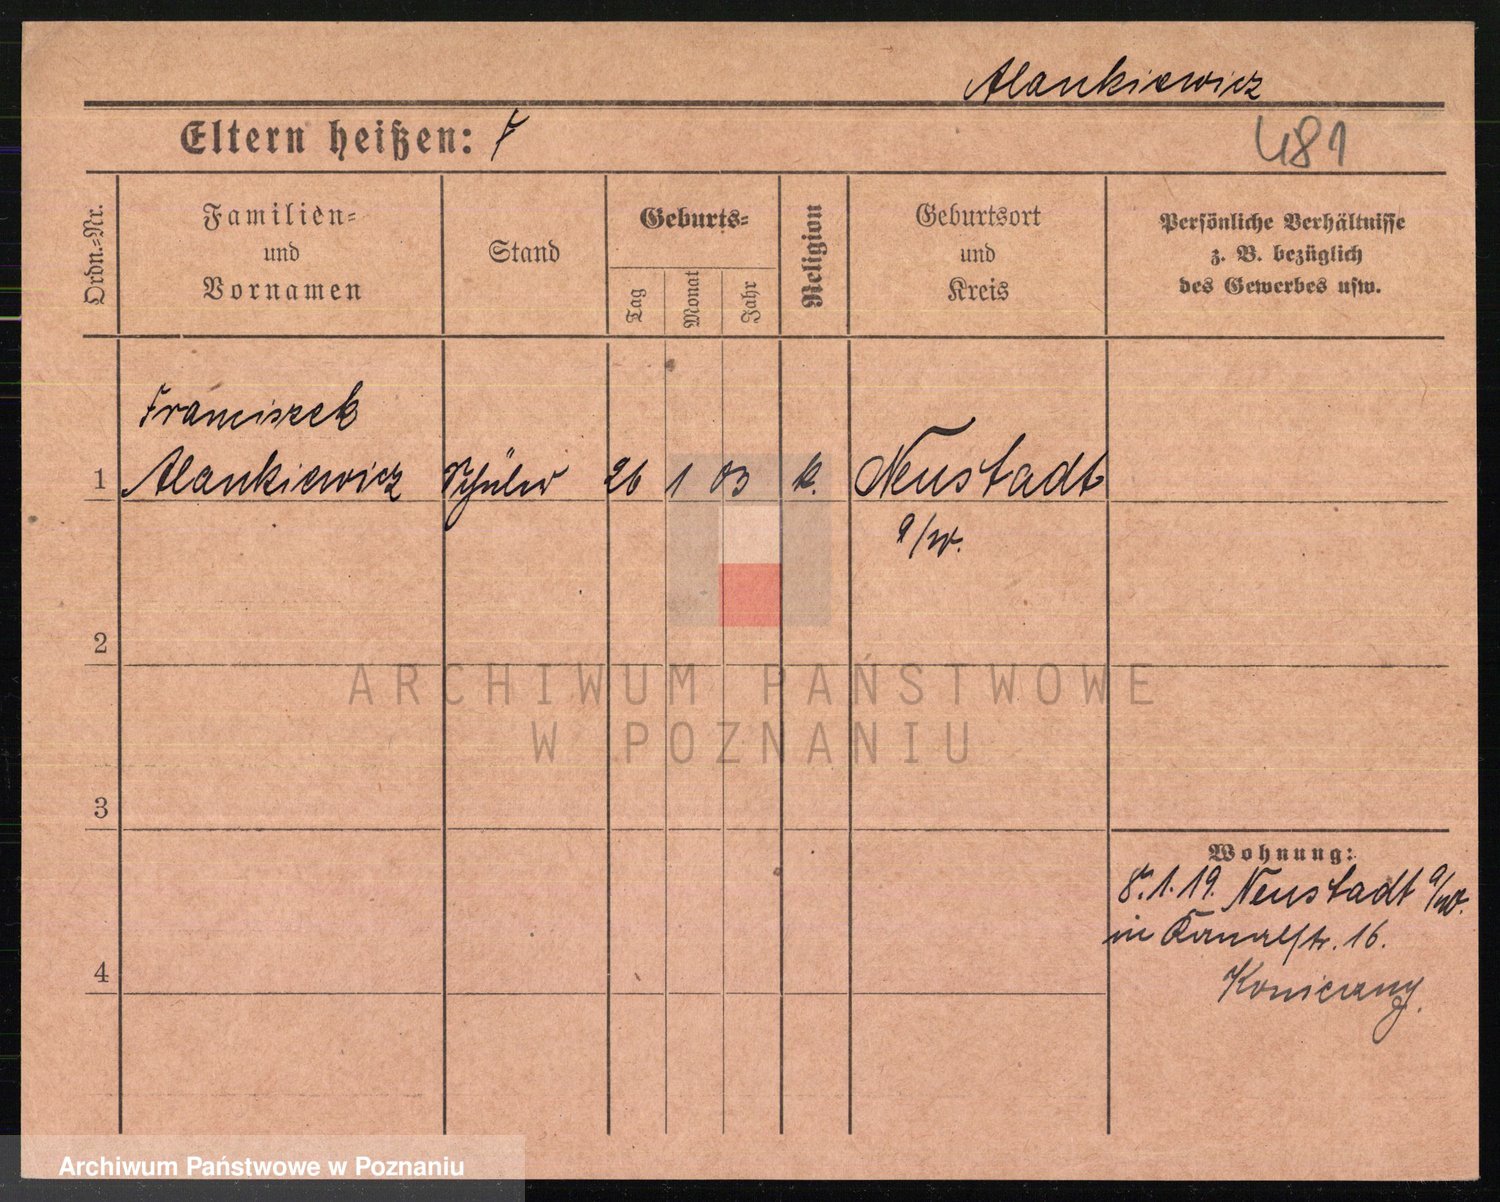 Alankiewicz
Eltern heißen: F
481
Ordn.=Nr.
Familien=
und
Vornamen
Stand
Geburts=
Tag
Monat
Jahr
Religion
Geburtsort
und
Kreis
Persönliche Verhältnisse
z. B. bezüglich
des Gewerbes usw.
Franciszek
1 Alankiewicz Schüler 26 1 03 k. Neustadt
a/W.
2
ARCHIWUM PAŃSTWOWE
W POZNANIU
3
Wohnung:
8.1.19. Neustadt a/W.
in Kanalstr. 16.
Konieczny.
4
Archiwum Państwowe w Poznaniu